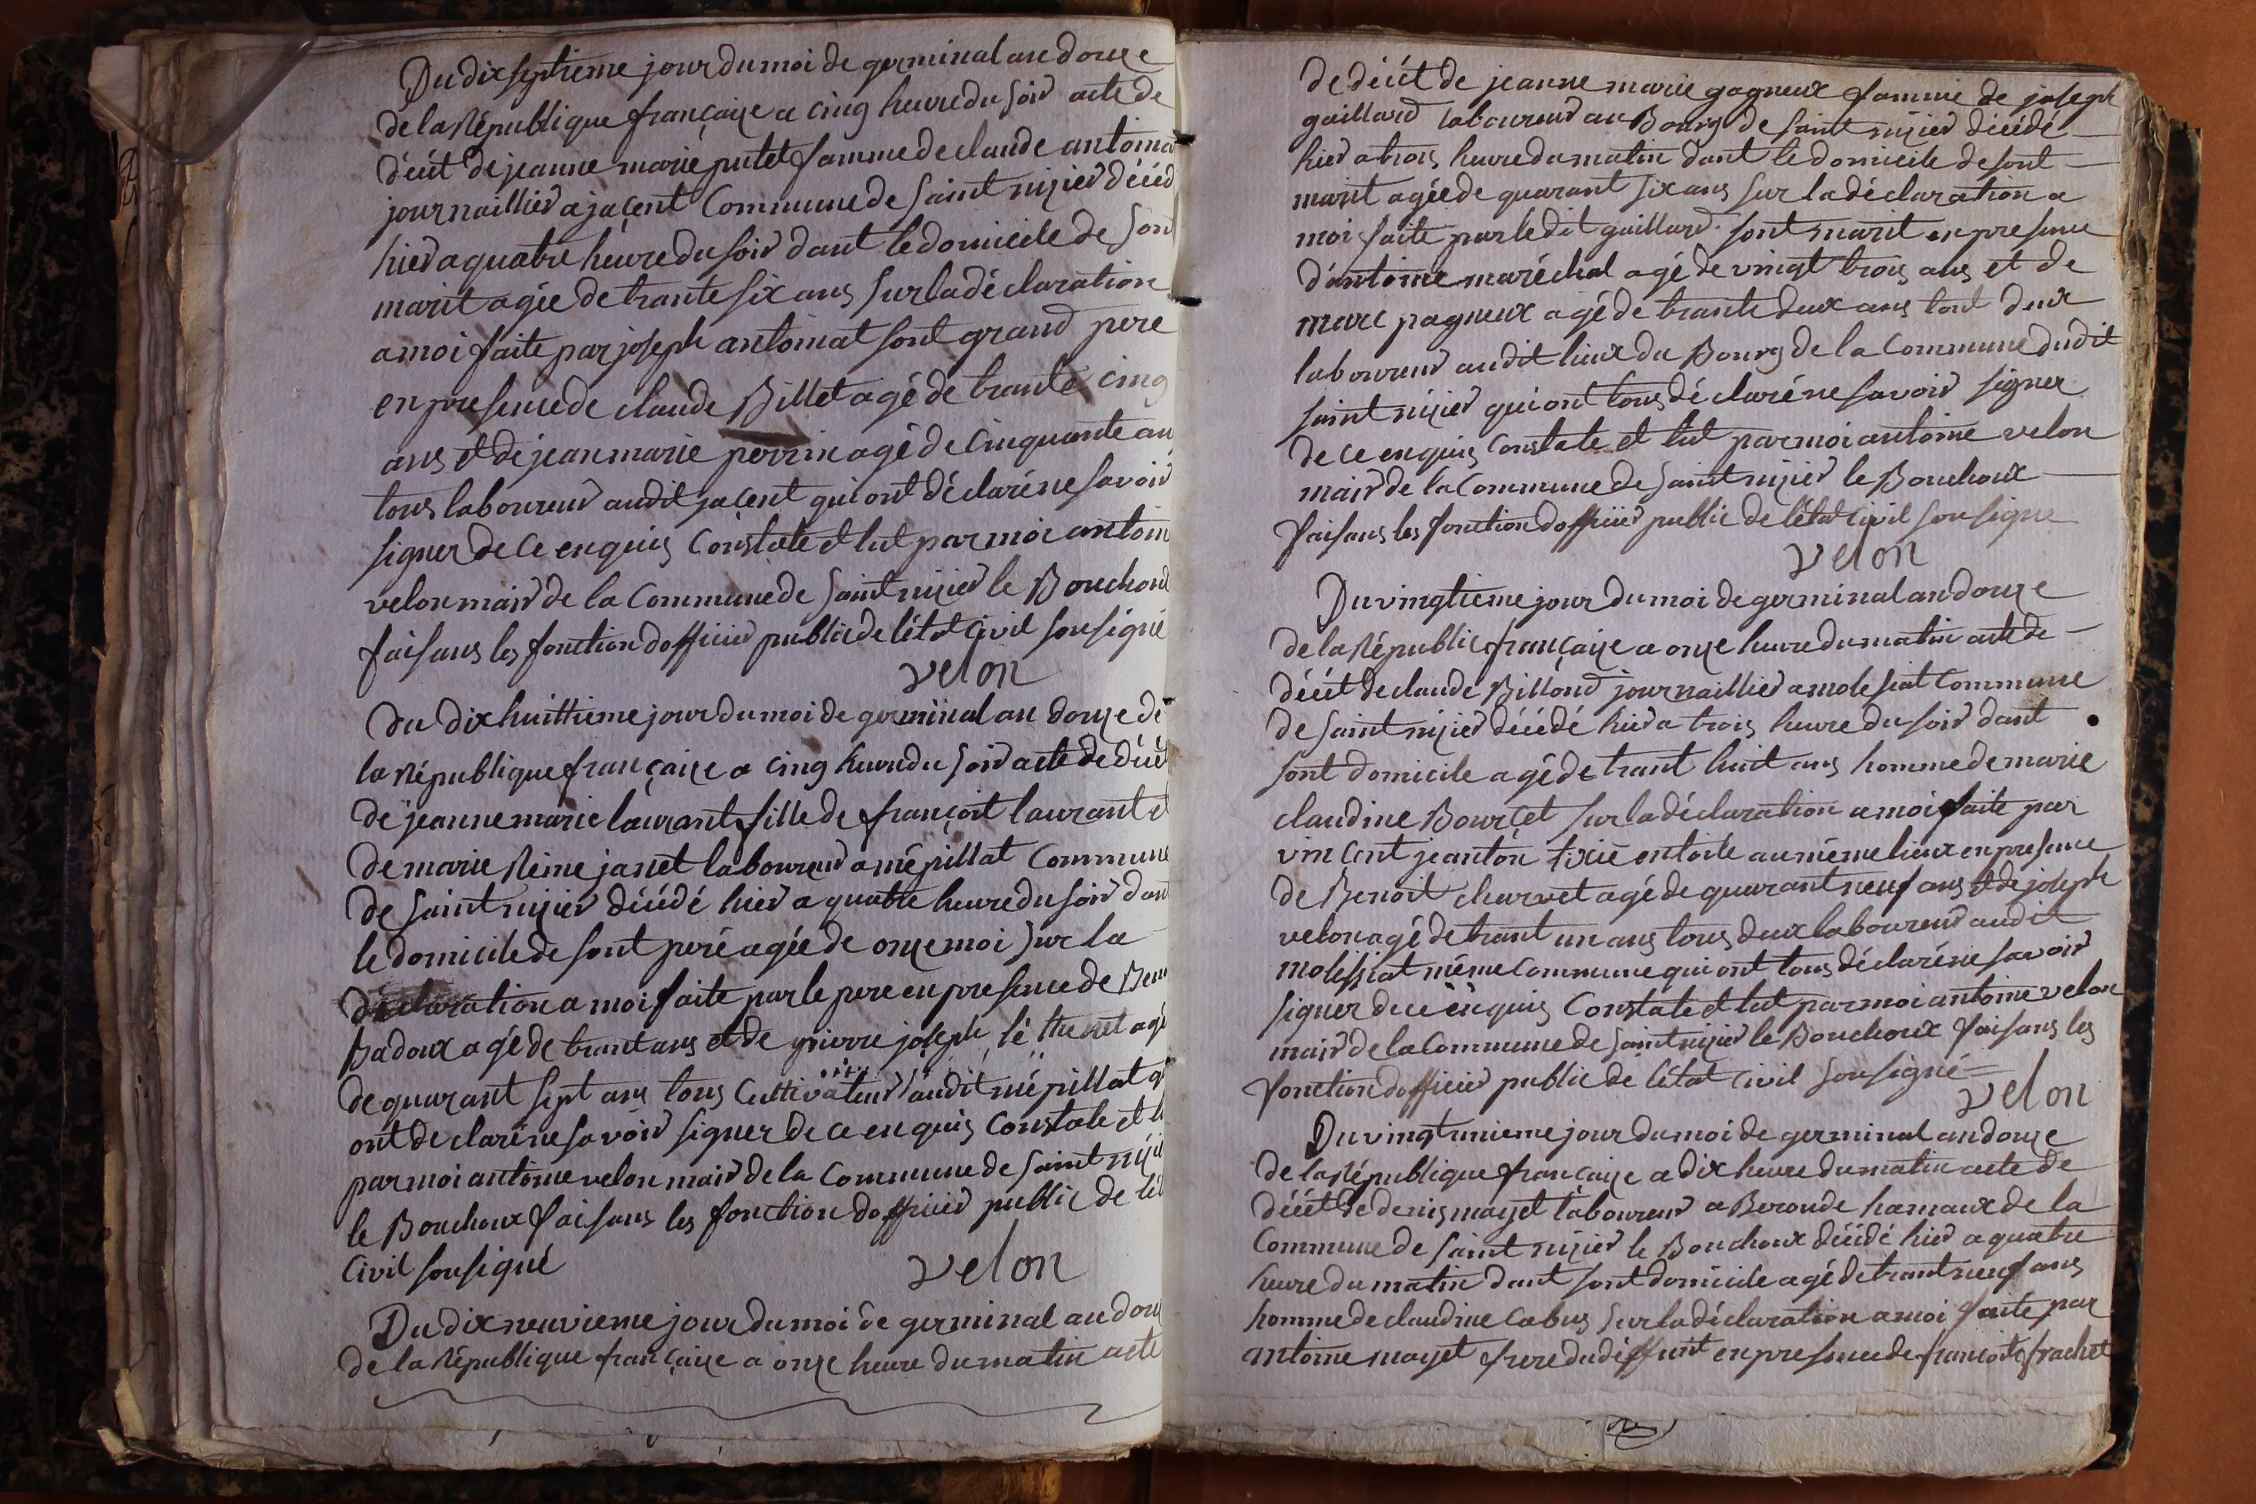 Du dix septieme jour du moi de germinal an douze
de la République françaize a cinq heure du soir acte de
décét de jeanne marie putet famme de claude antoma
journaillier a jaçent Commune de saint nizier décéd
hier a quatre heure du soir dant le domicile de son
marit agée de trante six ans sur la déclaration
a moi faite par joseph antomat sont grand pere
en presence de claude Billet agé de trante cinq
ans et de jean marie perrin agé de cinquante an
tous laboureur audit jacent qui ont déclaré ne savoir
signer de ce enquis Constate et lut par moi antoin
velon mair de la Commune de saint nizier le Bouchou
faisans les fonction dofficier public de létat Civil sousigné
velon
du dix huittieme jour du moi de germinal an douze de
la République françaize a cinq heure du soir acte de décét
de jeanne marie laurant fille de françoit laurant et
de marie Reine janet laboureur a mépillat Commune
de saint nizier décédé hier a quatre heure du soir dan
le domicile de sont peré agée de onze moi sur la
déclaration a moi faite par le pere en presence de Ben
Badoux agé de trant ans et de joseph thevenet agé
de quarant sept ans tous Cultivateur audit mépillat q
ont declaré ne savoir signer de ce enquis Constate et l
par moi antoine velon mair de la Commune de saint nizi
le Bouchoux faisans les fonction dofficier public de lét
Civil sousigné
velon
Du dix neuvieme jour du moi de germinal an douz
de la République françaize a onze heure du matin acte
de décét de jeanne marie gagneux famme de joseph
gaillard laboureur au Bourg de saint nizier décédé
hier a trois heure du matin dant le domicile de sont
marit agée de quarant six ans sur la déclaration a
moi faite par ledit gaillard sont marit en presence
d'antoine maréchal agé de vingt trois ans et de
marc pagneux agé de trante deux ans tout deux
laboureur audit lieux du Bourg de la Commune dudit
saint nizier qui ont tous déclaré ne savoir signer
de ce enquis Constate et lut par moi antoine velon
mair de la Commune de saint nizier le Bouchoux
faisans les fonction dofficier public de létat Civil sousigne
velon
Du vingtieme jour du moi de germinal an douze
de la Républic françaize a onze heure du matin acte de
décét de claude Billond journaillier a molesiat Commune
de saint nizier décédé hier a trois heure du soir dant
sont domicile agé de trant huit ans homme de marie
claudine Bourçet sur la déclaration a moi faite par
vincent jeanton tixié en toile au même lieux en presence
de Benoit charvet agé de quarant neuf ans et de joseph
velon agé de trant un ans tous deux laboureur audit
molessiat même Commune qui ont tous déclaré ne savoir
signer de ce enquis Constate et lut par moi antoine velon
mair de la Commune de saint nizier le Bouchoux faisans les
fonction dofficier public de létat Civil sousigné
velon
Du vingt unieme jour du moi de germinal an douze
de la République françaize a dix heure du matin acte de
décét de denis mayet laboureur a Beroude hamaux de la
Commune de saint nizier le Bouchoux décédé hier a quatre
heure du matin dant sont domicile agé de trant neuf ans
homme de claudine Cabus sur la déclaration a moi faite par
antoine mayet frere du diffunt en presence de francoit frachet